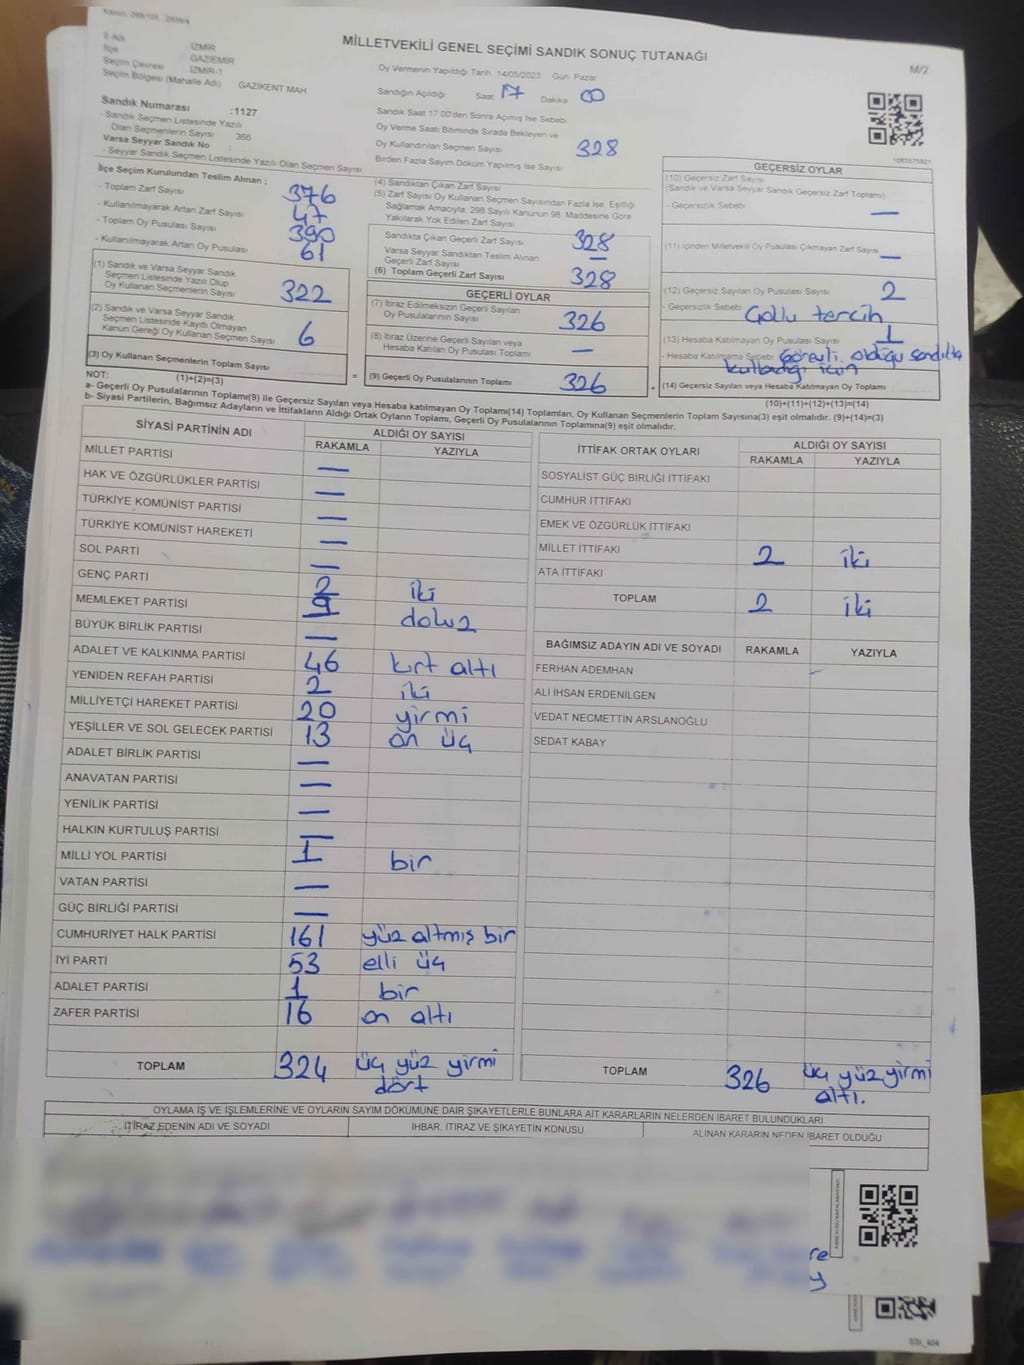 MİLLETVEKİLİ GENEL SEÇİMİ SANDIK SONUÇ TUTANAĞI
M/2
İl Adı İZMİR
İlçe GAZİEMİR
Seçim Çevresi İZMİR-1
Seçim Bölgesi (Mahalle Adı) GAZİKENT MAH
Sandık Numarası :1127
- Sandık Seçmen Listesinde Yazılı
Olan Seçmenlerin Sayısı 366
Varsa Seyyar Sandık No :
- Seyyar Sandık Seçmen Listesinde Yazılı Olan Seçmen Sayısı
Oy Vermenin Yapıldığı Tarih 14/05/2023 Gün Pazar
Sandığın Açıldığı Saat 17 Dakika 00
Sandık Saat 17:00'den Sonra Açılmış İse Sebebi
Oy Verme Saati Bitiminde Sırada Bekleyen ve
Oy Kullandırılan Seçmen Sayısı 328
Birden Fazla Sayım Döküm Yapılmış İse Sayısı
İlçe Seçim Kurulundan Teslim Alınan ;
- Toplam Zarf Sayısı 376
- Kullanılmayarak Artan Zarf Sayısı 47
- Toplam Oy Pusulası Sayısı 390
- Kullanılmayarak Artan Oy Pusulası 61
(1) Sandık ve Varsa Seyyar Sandık
Seçmen Listesinde Yazılı Olup
Oy Kullanan Seçmenlerin Sayısı 322
(2) Sandık ve Varsa Seyyar Sandık
Seçmen Listesinde Kayıtlı Olmayan
Kanun Gereği Oy Kullanan Seçmen Sayısı 6
(3) Oy Kullanan Seçmenlerin Toplam Sayısı
(1)+(2)=(3)
(4) Sandıktan Çıkan Zarf Sayısı
(5) Zarf Sayısı Oy Kullanan Seçmen Sayısından Fazla İse, Eşitliği
Sağlamak Amacıyla; 298 Sayılı Kanunun 98. Maddesine Göre
Yakılarak Yok Edilen Zarf Sayısı
Sandıkta Çıkan Geçerli Zarf Sayısı 328
Varsa Seyyar Sandıktan Teslim Alınan
Geçerli Zarf Sayısı —
(6) Toplam Geçerli Zarf Sayısı 328
GEÇERLİ OYLAR
(7) İtiraz Edilmeksizin Geçerli Sayılan
Oy Pusulalarının Sayısı 326
(8) İtiraz Üzerine Geçerli Sayılan veya
Hesaba Katılan Oy Pusulası Toplamı —
= (9) Geçerli Oy Pusulalarının Toplamı 326 +
GEÇERSİZ OYLAR
(10) Geçersiz Zarf Sayısı
(Sandık ve Varsa Seyyar Sandık Geçersiz Zarf Toplamı)
- Geçersizlik Sebebi —
(11) İçinden Milletvekili Oy Pusulası Çıkmayan Zarf Sayısı —
(12) Geçersiz Sayılan Oy Pusulası Sayısı 2
- Geçersizlik Sebebi Çoklu tercih
(13) Hesaba Katılmayan Oy Pusulası Sayısı 1
- Hesaba Katılmama Sebebi Görevli olduğu sandıkta
kulladığı için
(14) Geçersiz Sayılan veya Hesaba Katılmayan Oy Toplamı
(10)+(11)+(12)+(13)=(14)
NOT:
a- Geçerli Oy Pusulalarının Toplamı(9) ile Geçersiz Sayılan veya Hesaba katılmayan Oy Toplamı(14) Toplamları, Oy Kullanan Seçmenlerin Toplam Sayısına(3) eşit olmalıdır. (9)+(14)=(3)
b- Siyasi Partilerin, Bağımsız Adayların ve İttifakların Aldığı Ortak Oyların Toplamı, Geçerli Oy Pusulalarının Toplamına(9) eşit olmalıdır.
SİYASİ PARTİNİN ADI ALDIĞI OY SAYISI
RAKAMLA YAZIYLA
MİLLET PARTİSİ —
HAK VE ÖZGÜRLÜKLER PARTİSİ —
TÜRKİYE KOMÜNİST PARTİSİ —
TÜRKİYE KOMÜNİST HAREKETİ —
SOL PARTİ —
GENÇ PARTİ 2 iki
MEMLEKET PARTİSİ 9 dokuz
BÜYÜK BİRLİK PARTİSİ —
ADALET VE KALKINMA PARTİSİ 46 kırt altı
YENİDEN REFAH PARTİSİ 2 iki
MİLLİYETÇİ HAREKET PARTİSİ 20 yirmi
YEŞİLLER VE SOL GELECEK PARTİSİ 13 on üç
ADALET BİRLİK PARTİSİ —
ANAVATAN PARTİSİ —
YENİLİK PARTİSİ —
HALKIN KURTULUŞ PARTİSİ —
MİLLİ YOL PARTİSİ 1 bir
VATAN PARTİSİ —
GÜÇ BİRLİĞİ PARTİSİ —
CUMHURİYET HALK PARTİSİ 161 yüz altmış bir
İYİ PARTİ 53 elli üç
ADALET PARTİSİ 1 bir
ZAFER PARTİSİ 16 on altı
TOPLAM 324 üç yüz yirmi
dört
İTTİFAK ORTAK OYLARI ALDIĞI OY SAYISI
RAKAMLA YAZIYLA
SOSYALİST GÜÇ BİRLİĞİ İTTİFAKI
CUMHUR İTTİFAKI
EMEK VE ÖZGÜRLÜK İTTİFAKI
MİLLET İTTİFAKI 2 iki
ATA İTTİFAKI
TOPLAM 2 iki
BAĞIMSIZ ADAYIN ADI VE SOYADI RAKAMLA YAZIYLA
FERHAN ADEMHAN
ALİ İHSAN ERDENİLGEN
VEDAT NECMETTİN ARSLANOĞLU
SEDAT KABAY
TOPLAM 326 üç yüz yirmi
altı.
OYLAMA İŞ VE İŞLEMLERİNE VE OYLARIN SAYIM DÖKÜMÜNE DAİR ŞİKAYETLERLE BUNLARA AİT KARARLARIN NELERDEN İBARET BULUNDUKLARI
İTİRAZ EDENİN ADI VE SOYADI İHBAR, İTİRAZ VE ŞİKAYETİN KONUSU ALINAN KARARIN NEDEN İBARET OLDUĞU